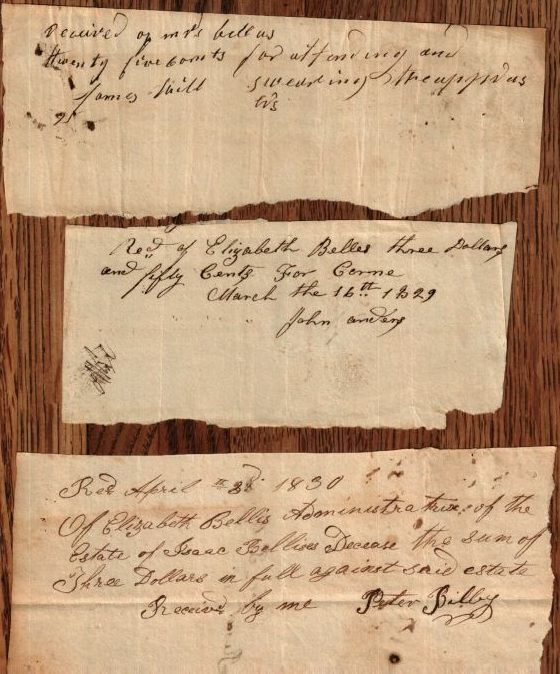 received of mrs bellas
twenty five cents for attending and
James hill swearing the apprs
25
Recd of Elizabeth Belles three Dollars
and fifty Cents For Corne
March the 16th 1829
John anders
Recd April 3d 1830
Of Elizabeth Bellis Administratrix of the
Estate of Isaac Bellises Decease the sum of
Three Dollars in full against said estate
Received by me Peter Bilby